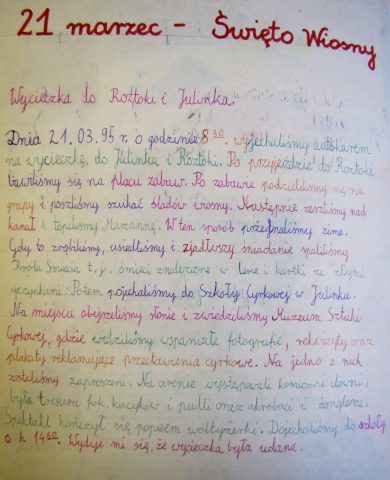 21 marzec - Święto Wiosny
Wycieczka do Roztoki i Julinka.
Dnia 21.03.95 r. o godzinie 8³⁰ wyjechaliśmy autokarem
na wycieczkę do Julinka i Roztoki. Po przyjeździe do Roztoki
bawiliśmy się na placu zabaw. Po zabawie podzieliliśmy się na
grupy i poszliśmy szukać śladów wiosny. Następnie zeszliśmy nad
kanał i topiliśmy Marzannę. W ten sposób pożegnaliśmy zimę.
Gdy to zrobiliśmy, usiedliśmy i zjadłszy śniadanie spaliliśmy
Króla Śmiecia t. j. śmieci znalezione w lesie i kartki ze złymi
uczynkami. Potem pojechaliśmy do Szkoły Cyrkowej w Julinku.
Na miejscu obejrzeliśmy słonie i zwiedziliśmy Muzeum Sztuki
Cyrkowej, gdzie widzieliśmy wspaniałe fotografie, rekwizyty oraz
plakaty reklamujące przedstawienia cyrkowe. Na jedno z nich
zostaliśmy zaproszeni. Na arenie występowali komiczni clowni,
była tresura fok, kucyków i pudli oraz akrobaci i żonglerze.
Spektakl kończył się popisem woltyżerki. Dojechaliśmy do szkoły
o h 14³⁰. Wydaje mi się, że wycieczka była udana.